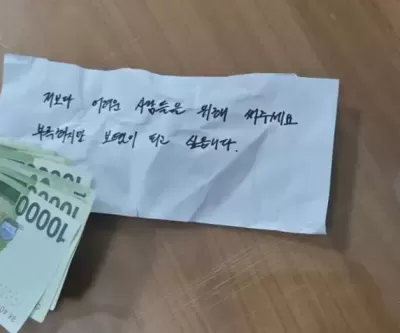 저보다 어려운 사람들을 위해 써주세요
부족하지만 보탬이 되고 싶습니다.
10000
10000
10000